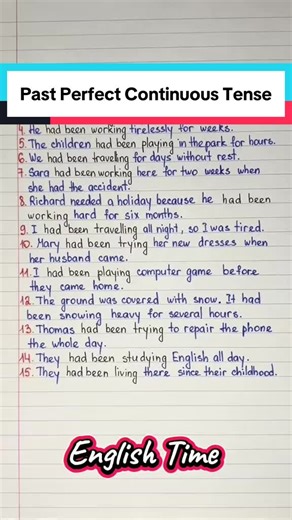 Past Perfect Continuous Tense
4. He had been working tirelessly for weeks.
5. The children had been playing in the park for hours.
6. We had been traveling for days without rest.
7. Sara had been working here for two weeks when
she had the accident.
8. Richard needed a holiday because he had been
working hard for six months.
9. I had been travelling all night, so I was tired.
10. Mary had been trying her new dresses when
her husband came.
11. I had been playing computer game before
they came home.
12. The ground was covered with snow. It had
been snowing heavy for several hours.
13. Thomas had been trying to repair the phone
the whole day.
14. They had been studying English all day.
15. They had been living there since their childhood.
English Time